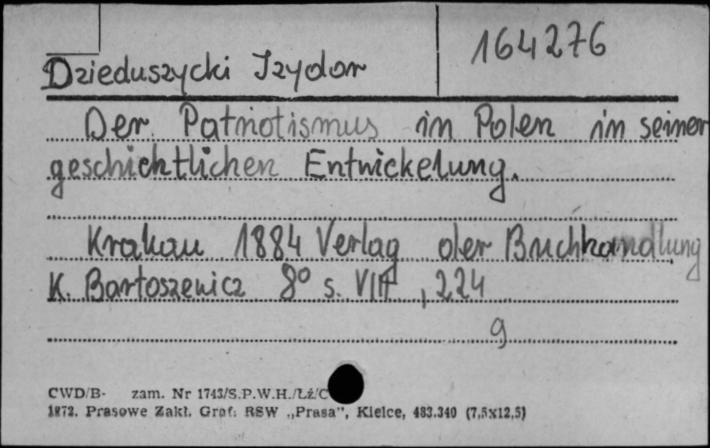 164276
Dzieduszycki Izydor
Der Patriotismus in Polen in seiner
geschichtlichen Entwickelung.
Krakau 1884 Verlag der Buchhandlung
K. Bartoszewicz 8° s. VIII, 224
g
CWD/B- zam. Nr 1743/S.P.W.H./Łź/C
1972. Prasowe Zakł. Graf. RSW „Prasa", Kielce, 483.340 (7,5x12,5)